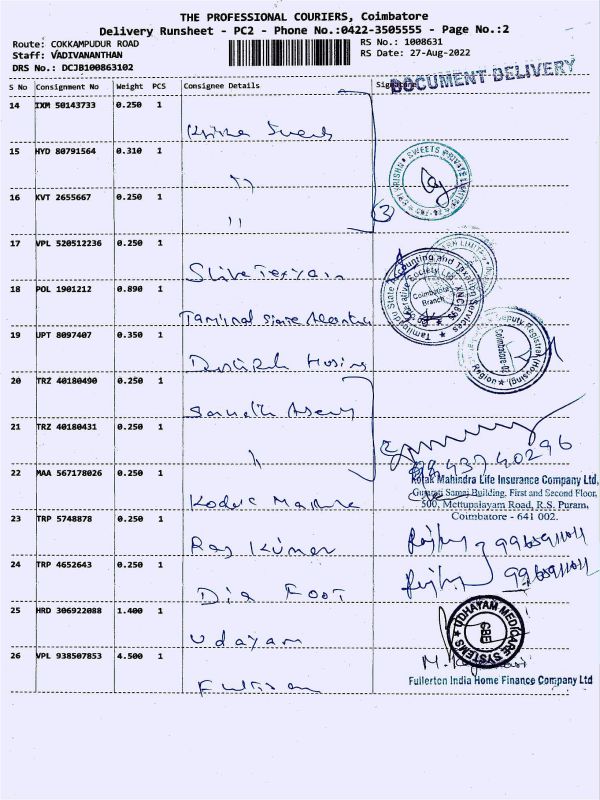 THE PROFESSIONAL COURIERS, Coimbatore
Delivery Runsheet - PC2 - Phone No.:0422-3505555 - Page No.:2
Route: COKKAMPUDUR ROAD
RS No.: 1008631
Staff: VADIVANANTHAN
RS Date: 27-Aug-2022
DRS No.: DCJB100863102
DOCUMENT DELIVERY
S No Consignment No Weight PCS Consignee Details
14 IXM 50143733 0.250 1
15 HYD 80791564 0.310 1 ''
16 KVT 2655667 0.250 1 ''
SRI KRISHNA SWEETS PRIVATE LIMITED
3
17 VPL 520512236 0.250 1
18 POL 1901212 0.890 1 Tamilnad State
Tamilnadu State Accounting and Taxation Services
Coimbatore Branch
19 UPT 8097407 0.350 1 Housing
Deputy Registrar (Housing)
Coimbatore Region
20 TRZ 40180490 0.250 1
21 TRZ 40180431 0.250 1 ''
9843740296
22 MAA 567178026 0.250 1
Kotak Mahindra Life Insurance Company Ltd,
Gujarati Samaj Building, First and Second Floor,
500, Mettupalayam Road, R.S. Puram,
Coimbatore - 641 002.
23 TRP 5748878 0.250 1 Raj Kumar
24 TRP 4652643 0.250 1 Dia Foot
25 HRD 306922088 1.400 1 Udayam
UDHAYAM MEDICARE SYSTEMS
CBE
26 VPL 938507853 4.500 1
Fullerton India Home Finance Company Ltd